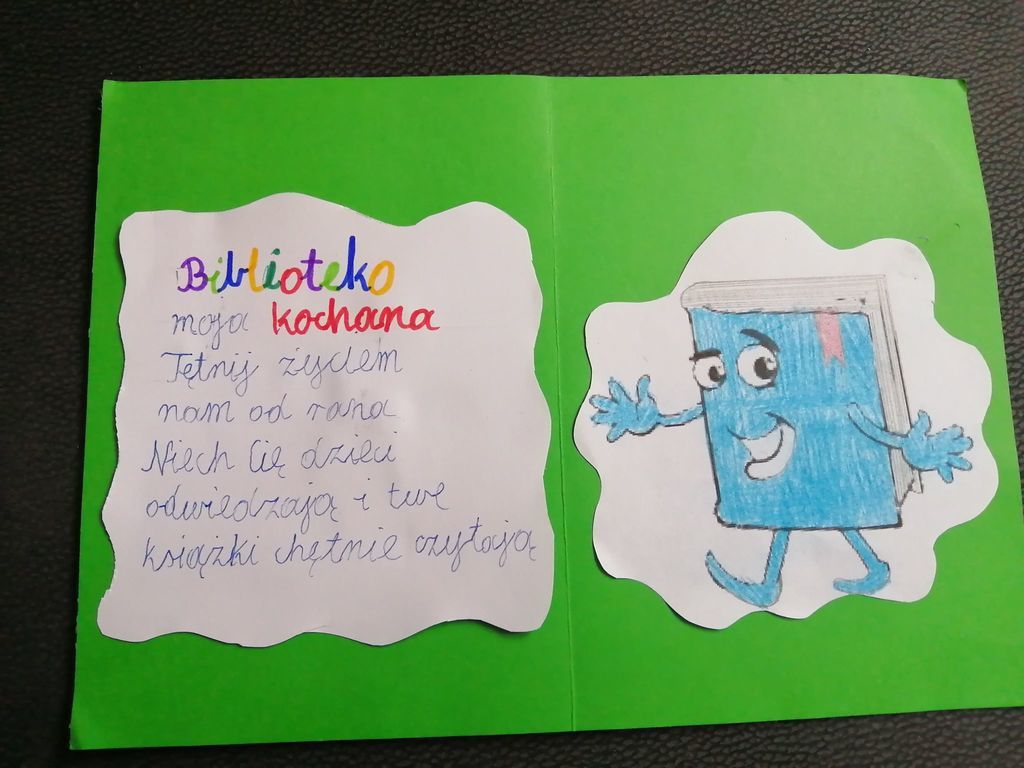 Biblioteko
moja kochana
Tętnij życiem
nam od rana
Niech Cię dzieci
odwiedzają i twe
książki chętnie czytają